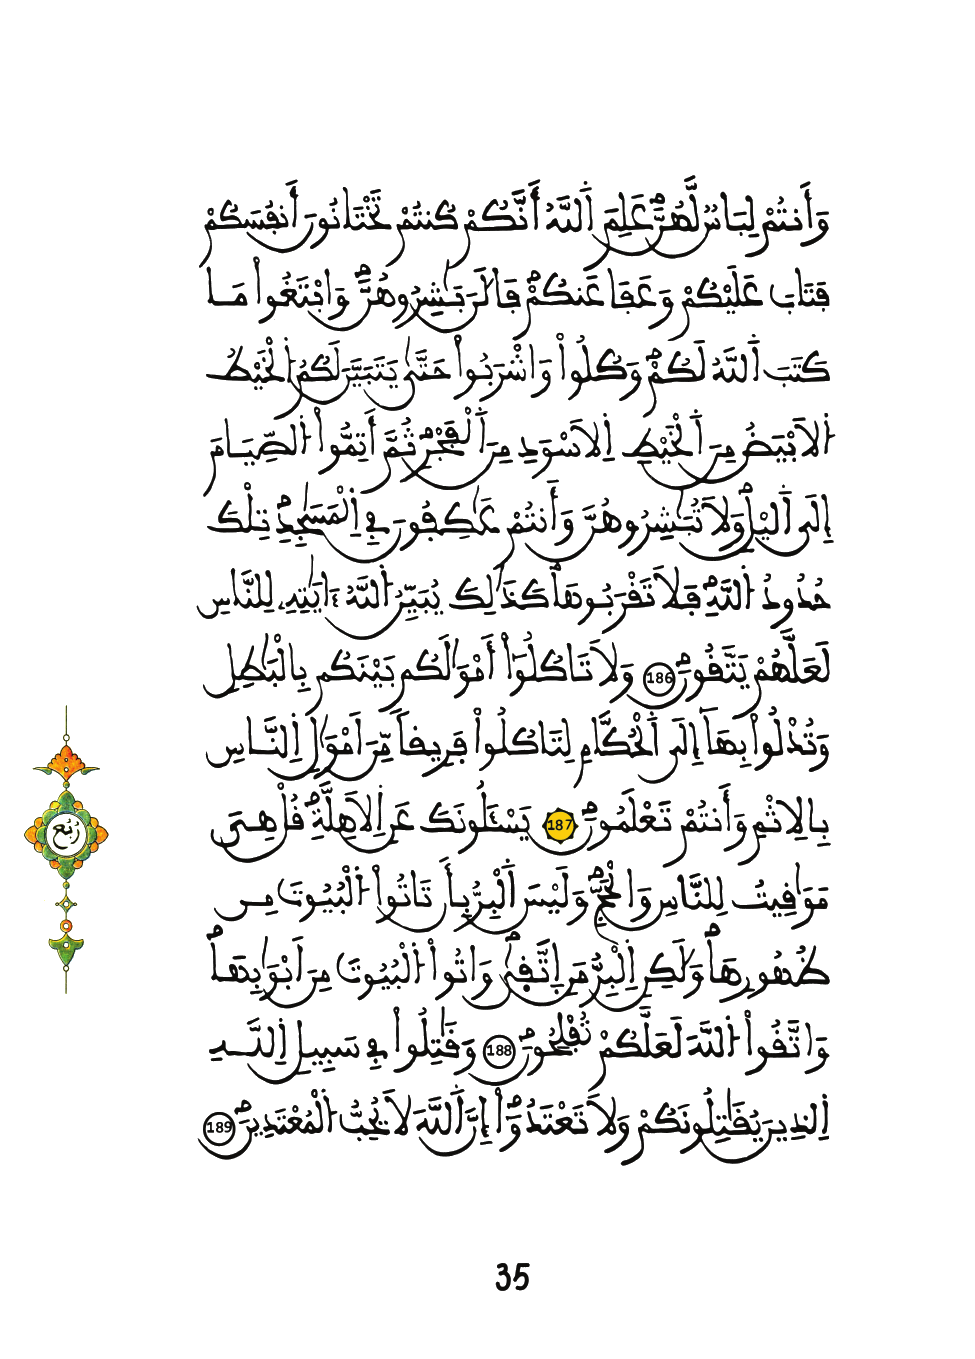 وَأَنتُمْ لِبَاسٌ لَّهُنَّۖ عَلِمَ اَ۬للَّهُ أَنَّكُمْ كُنتُمْ تَخْتَانُونَ أَنفُسَكُمْ
فَتَابَ عَلَيْكُمْ وَعَفَا عَنكُمْۖ فَالَٰنَ بَٰشِرُوهُنَّۖ وَابْتَغُواْ مَا
كَتَبَ اَ۬للَّهُ لَكُمْۖ وَكُلُواْ وَاشْرَبُواْ حَتَّىٰ يَتَبَيَّنَ لَكُمُ اُ۬لْخَيْطُ
اُ۬لَابْيَضُ مِنَ اَ۬لْخَيْطِ اِ۬لَاسْوَدِ مِنَ اَ۬لْفَجْرِۖ ثُمَّ أَتِمُّواْ اُ۬لصِّيَامَ
إِلَى اَ۬ليْلِۖ وَلَا تُبَٰشِرُوهُنَّ وَأَنتُمْ عَٰكِفُونَ فِے اِ۬لْمَسَٰجِدِۖ تِلْكَ
حُدُودُ اُ۬للَّهِۖ فَلَا تَقْرَبُوهَاۖ كَذَٰلِكَ يُبَيِّنُ اُ۬للَّهُ ءَايَٰتِهِۦ لِلنَّاسِ
لَعَلَّهُمْ يَتَّقُونَۖ 186 وَلَا تَاكُلُوٓاْ أَمْوَٰلَكُم بَيْنَكُم بِالْبَٰطِلِ
وَتُدْلُواْ بِهَآ إِلَى اَ۬لْحُكَّامِ لِتَاكُلُواْ فَرِيقاً مِّنَ اَمْوَٰلِ اِ۬لنَّاسِ
بِالِاثْمِ وَأَنتُمْ تَعْلَمُونَۖ 187 يَسْـَٔلُونَكَ عَنِ اِ۬لَاهِلَّةِۖ قُلْ هِيَ
مَوَٰقِيتُ لِلنَّاسِ وَالْحَجِّۖ وَلَيْسَ اَ۬لْبِرُّ بِأَن تَاتُواْ اُ۬لْبُيُوتَ مِن
ظُهُورِهَاۖ وَلَٰكِنِ اِ۬لْبِرُّ مَنِ اِ۪تَّقٰ۪ىۖ وَاتُواْ اُ۬لْبُيُوتَ مِنَ اَبْوَٰبِهَاۖ
وَاتَّقُواْ اُ۬للَّهَ لَعَلَّكُمْ تُفْلِحُونَۖ 188 وَقَٰتِلُواْ فِے سَبِيلِ اِ۬للَّهِ
اِ۬لذِينَ يُقَٰتِلُونَكُمْ وَلَا تَعْتَدُوٓاْۖ إِنَّ اَ۬للَّهَ لَا يُحِبُّ اُ۬لْمُعْتَدِينَۖ 189
رُبُع
35